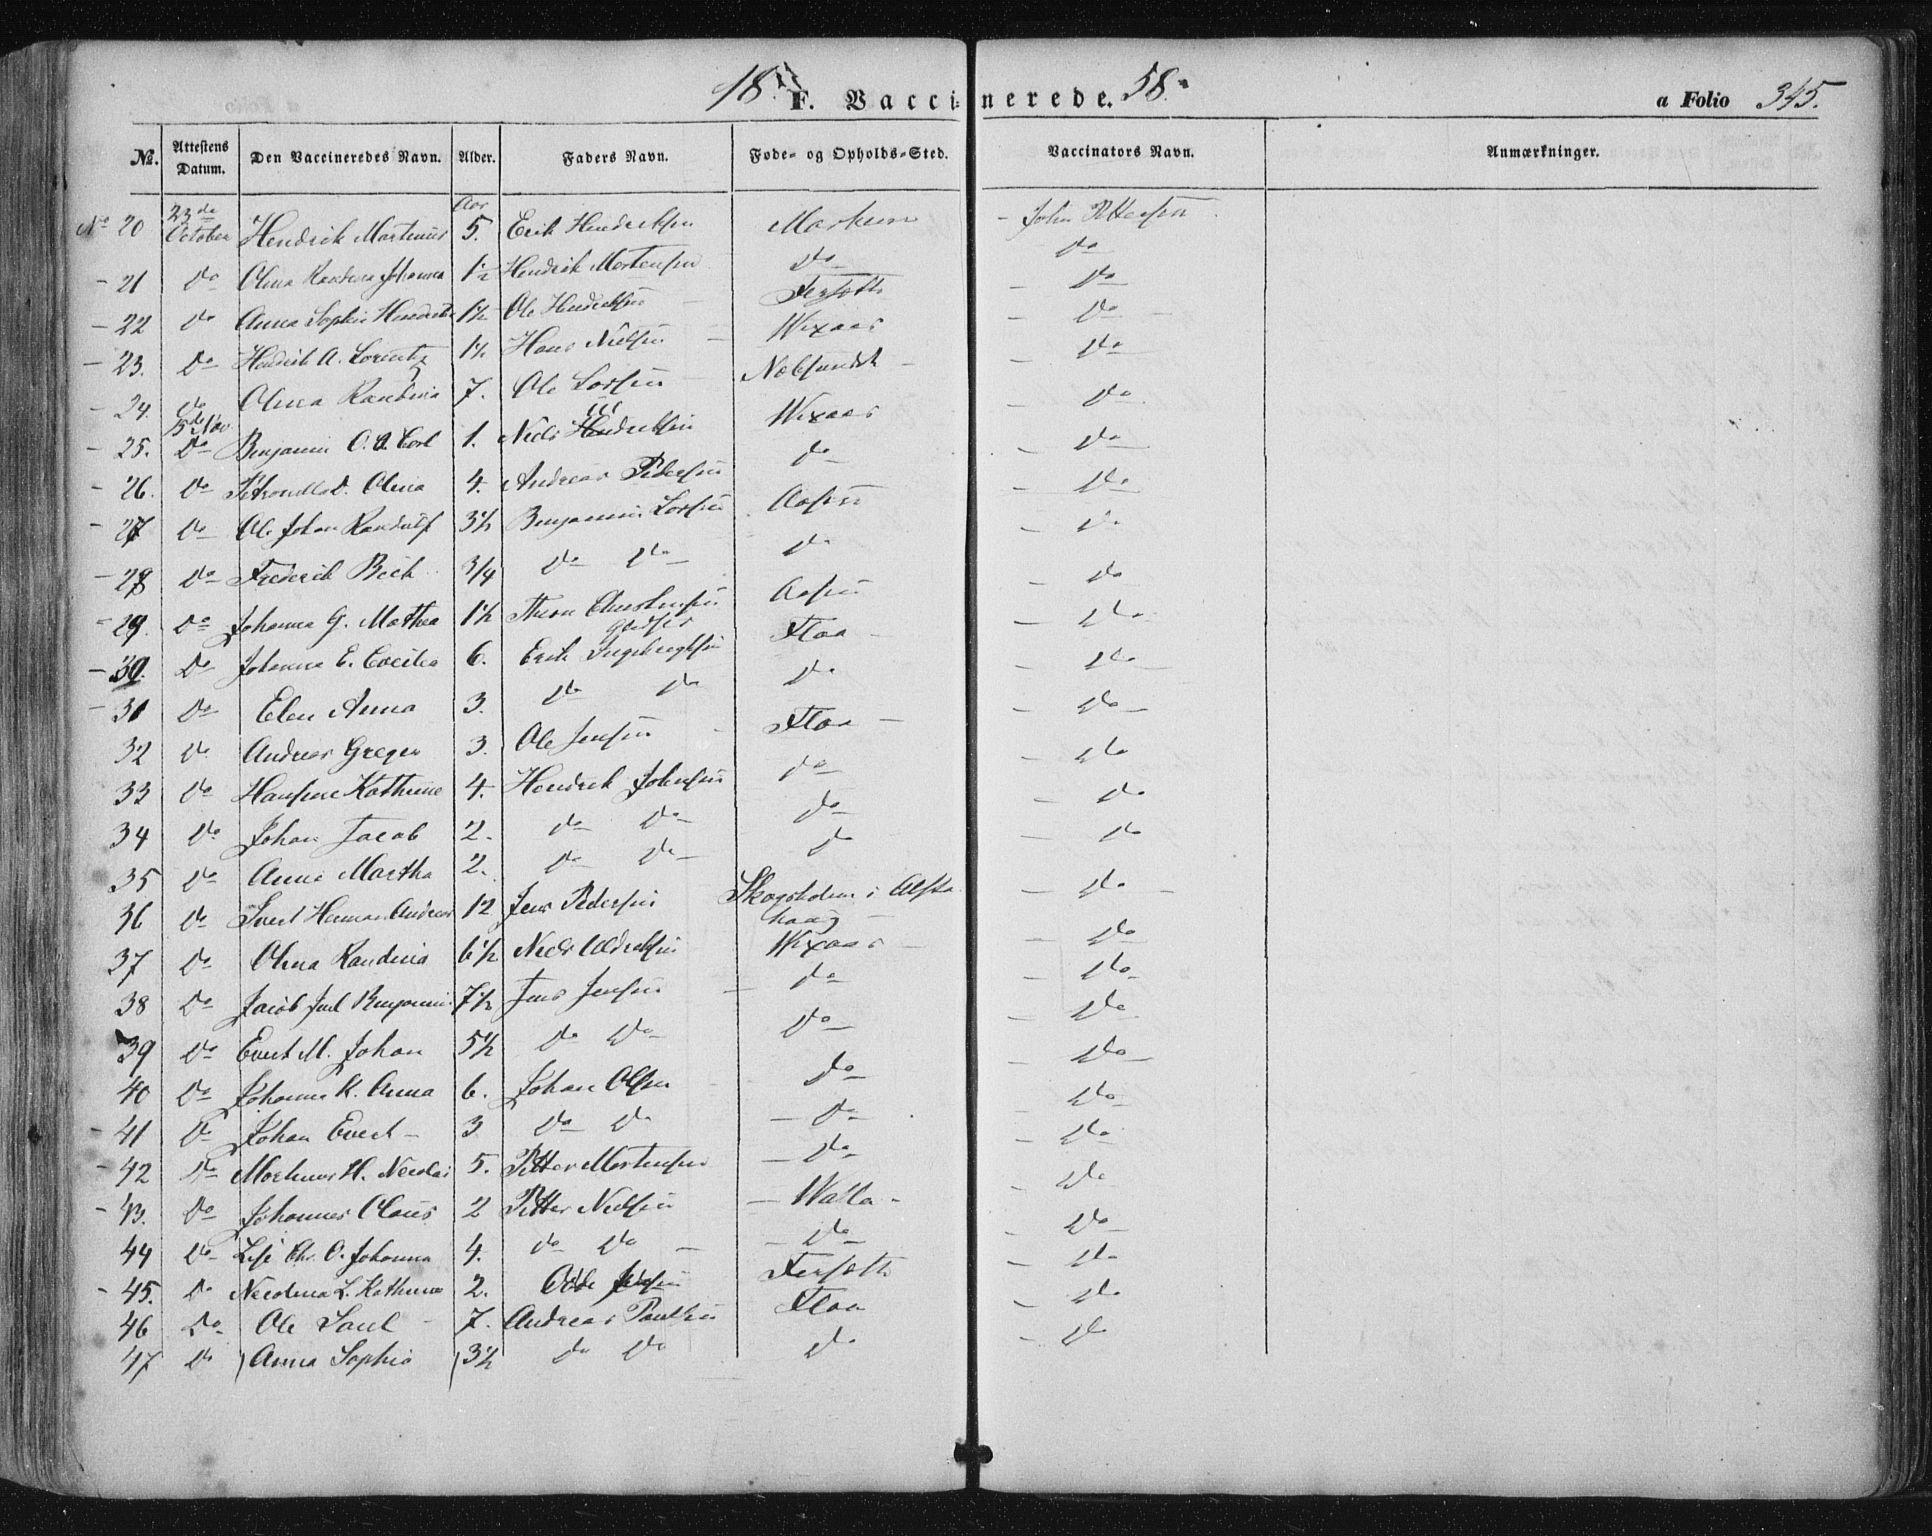 18 F. Vaccinerede. 58.
a Folio 345.
№. Attestens Datum. Den Vaccineredes Navn. Alder. Faders Navn. Føde- og Opholds-Sted. Vaccinators Navn. Anmærkninger.
Aar
No 20 23de October Hendrik Martinus 5. Erik Hendriksen - John
- 21 Do Olina Randina Johanna 1½ Hendrik Mortensen Do Do
- 22 Do Anna Sophie 1½ Ole Hendriksen Do
- 23. Do Hendrik A. Lorentz 1½ Hans Nielsen Wixaas Do
- 24. Do Olina Randina 7. Ole Larsen Do
- 25. 15de Nov Do Benjamin O. Carl 1. Niels Wixaas Do
- 26. Do Olina 4. Andreas Pedersen Do Do
- 27 Do Ole Johan Randulf 3½ Benjamin Larsen Do
- 28 Do Frederik Beck 3/4 Do Do Do Do
- 29. Do Johanna G. Mathea 1½ Do
- 30. Do Johanna E. Cecilia 6. Erik Ingebrigtsen Floa Do
- 31 Do Elen Anna 3. Do Do Do Do
32 Do Andreas Greger 3. Ole Jensen Floa Do
33 Do Kathrine 4. Hendrik Johnsen Do Do
34 Do Johan Jacob 2. Do Do Do Do
35 Do Anne Martha 2. Do Do Do Do
36 Do Sivert Herman Andreas 12 Jens Pedersen Skogsholmen i Alsta
haug Do
37 Do Olina Randina 6½ Niels Wixaas Do
38 Do Jacob Juel Benjamin 7½ Jens Jensen Do Do
39 Do Evert M. Johan 5½ Do Do Do Do
40 Do Johanna K. Anna 6. Johan Olsen Do Do
- 41 Do Johan Evert 3 Do Do Do Do
- 42 Do H. Nicolai 5. Petter Mortensen Do Do
- 43. Do Johannes Olaus 2 Petter Nielsen Walla Do
44 Do Chr. O. Johanna 4. Do Do Do Do
- 45. Do Nicolina L. Kathrine 2. Do
46 Do Ole Paul 7. Andreas Paulsen Floa Do
47 Do Anna Sophie 3½ Do Do Do Do